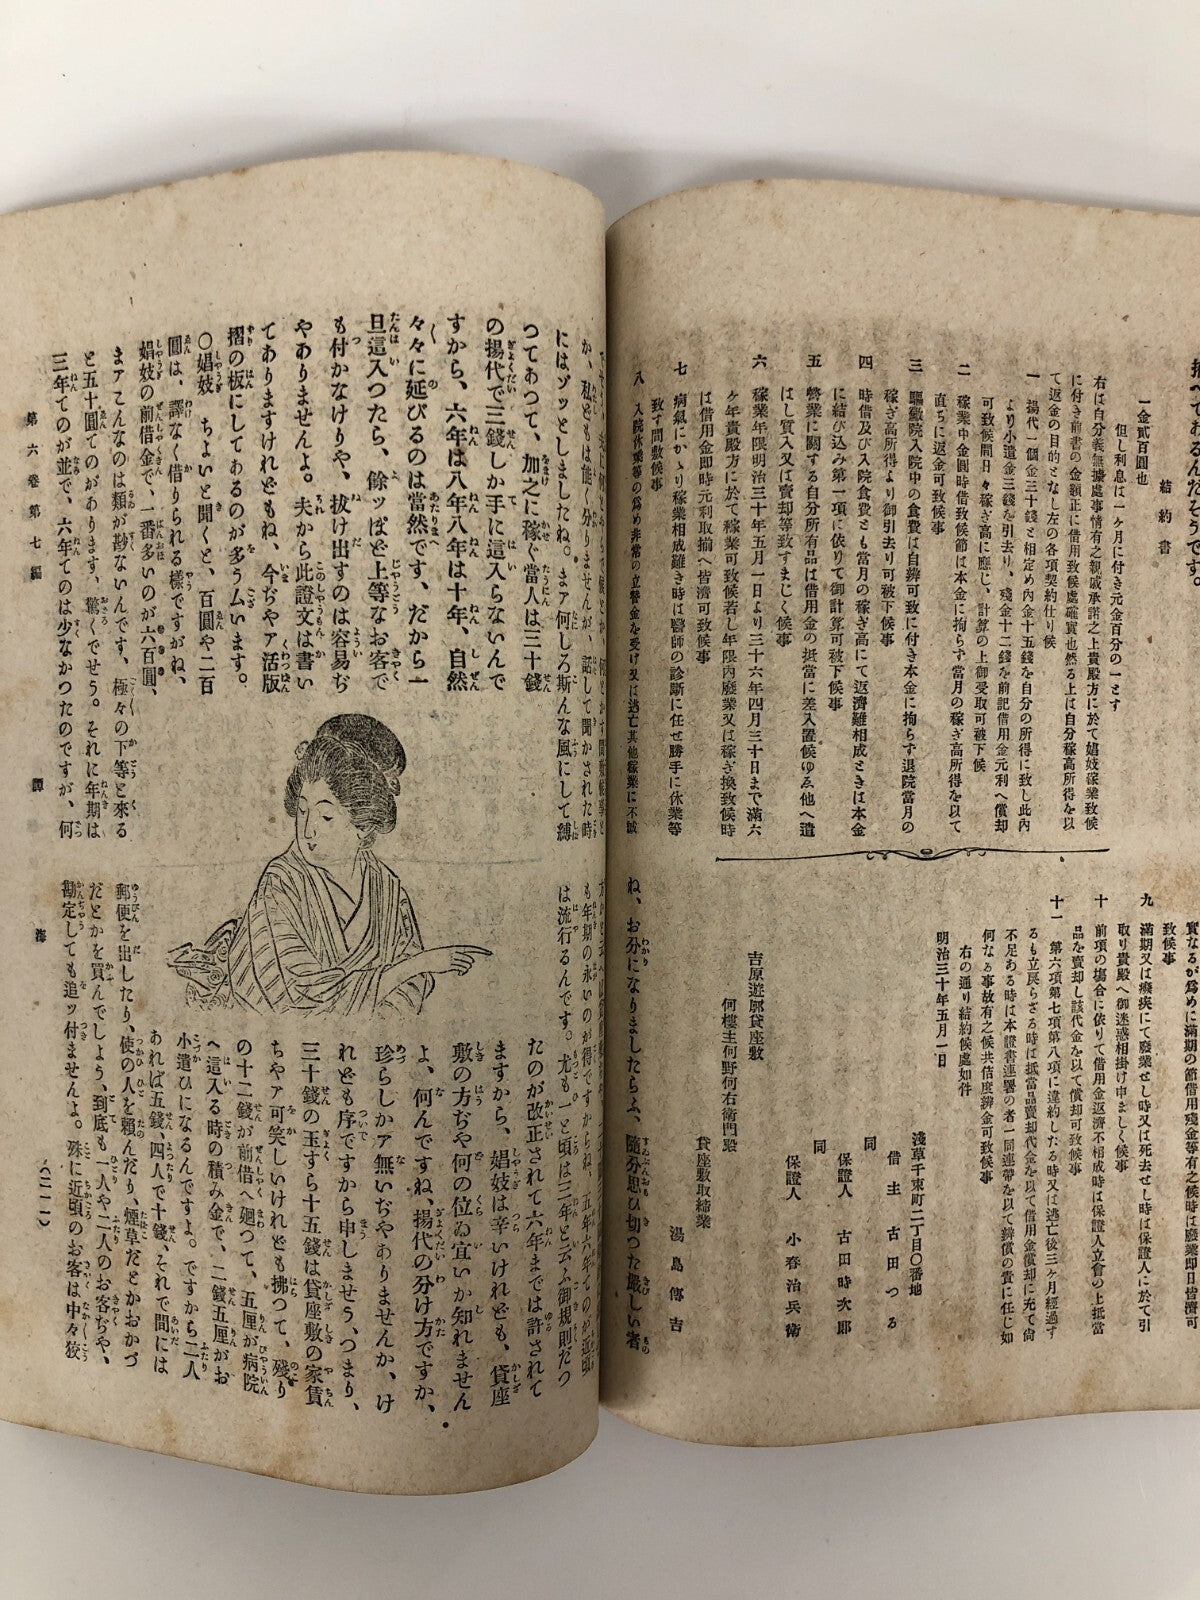 拵へておるんだそうです。
結約書
一金貳百圓也
但し利息は一ケ月に付き元金百分の一とす
右は自分義無據處事情有之親戚承諾之上貴殿方に於て娼妓稼業致候
に付き前書の金額正に借用致候處確實也然る上は自分稼高所得を以
て返金の目的となし左の各項契約仕り候
一　揚代一個金三十錢と相定め內金十五錢を自分の所得に致し此內
より小遣金三錢を引去り、殘金十二錢を前記借用金元利へ償却
可致候間日々稼ぎ高に應じ、計算の上御受取可被下候
二　稼業中金圓時借致候節は本金に拘らず當月の稼ぎ高所得を以て
直ちに返金可致候事
三　驅黴院入院中の食費は自辨可致に付き本金に拘らず退院當月の
稼ぎ高所得より御引去り可被下候事
四　時借及び入院食費とも當月の稼ぎ高にて返濟難相成ときは本金
に結び込み第一項に依りて御計算可被下候事
五　營業に關する自分所有品は借用金の抵當に差入置候ゆゑ他へ遣
はし質入又は賣却等致すまじく候事
六　稼業年限明治三十年五月一日より三十六年四月三十日まで滿六
ケ年貴殿方に於て稼業可致候若し年限內廢業又は稼ぎ換致候時
は借用金即時元利取揃へ皆濟可致候事
七　病氣にかゝり稼業相成難き時は醫師の診斷に任せ勝手に休業等
致す間敷候事
八　入院休業等の爲め非常の立替金を受け又は逃亡其他稼業に不誠
實なるが爲めに滿期の節借用殘金等有之候時は廢業即日皆濟可
致候事
九　滿期又は癈疾にて廢業せし時又は死去せし時は保證人に於て引
取り貴殿へ御迷惑相掛け申まじく候事
十　前項の塲合に依りて借用金返濟不相成時は保證人立會の上抵當
品を賣却し該代金を以て償却可致候事
十一　第六項第七項第八項に違約したる時又は逃亡後三ケ月經過す
るも立戾らざる時は抵當品賣却代金を以て借用金償却に充て尙
不足ある時は本證書連署の者一同連帶を以て辨償の責に任じ如
何なる事故有之候共佶度辨金可致候事
右の通り結約候處如件
明治三十年五月一日
淺草千束町二丁目〇番地
借主　古田つる
同　保證人　古田時次郎
同　保證人　小春治兵衛
吉原遊廓貸座敷
何樓主何野何右衛門殿
貸座敷取締業　湯島傳吉
ね、お分になりましたらふ、隨分思ひ切つた嚴しい者
か、私ども は能く分りませんが、話して聞かされた時
にはゾッとしましたね。まア何しろ斯んな風にして縛
つてあつて、加之に稼ぐ當人は三十錢
の揚代で三錢しか手に這入らないんで
すから、六年は八年八年は十年、自然
々々に延びるのは當然です、だから一
旦這入つたら、餘ッぽど上等なお客で
も付かなけりや、拔け出すのは容易ぢ
やありませんよ。夫から此證文は書い
てありますけれどもね、今ぢやア活版
摺の板にしてあるのが多うムいます。
〇娼妓　ちよいと聞くと、百圓や二百
圓は、譯なく借りられる樣ですがね、
娼妓の前借金で、一番多いのが六百圓、
まアこんなのは類が尠ないんです、極々の下等と來る
と五十圓てのがあります、驚くでせう。それに年期は
三年てのが並で、六年てのは少なかつたのですが、何
も年期の永いのが得ですからね、五年六年てのが近頃
は流行るんです。尤も一と頃は三年と云ふ御規則だつ
たのが改正されて六年までは許されて
ますから、娼妓は辛いけれども、貸座
敷の方ぢや何の位ゐ宜いか知れません
よ、何んですね、揚代の分け方ですか、
珍らしかア無いぢやありませんか、け
れども序ですから申しませう、つまり、
三十錢の玉すら十五錢は貸座敷の家賃
ちやア可笑しいけれども拂つて、殘り
の十二錢が前借へ廻つて、五厘が病院
へ這入る時の積み金で、二錢五厘がお
小遣ひになるんですよ。ですから二人
あれば五錢、四人で十錢、それで間には
郵便を出したり、使の人を賴んだり、煙草だとかおかづ
だとかを買んでしよう、到底も一人や二人のお客ぢや、
勘定しても追ッ付ませんよ。殊に近頃のお客は中々狡
第六卷第七編　譚海　（二一）